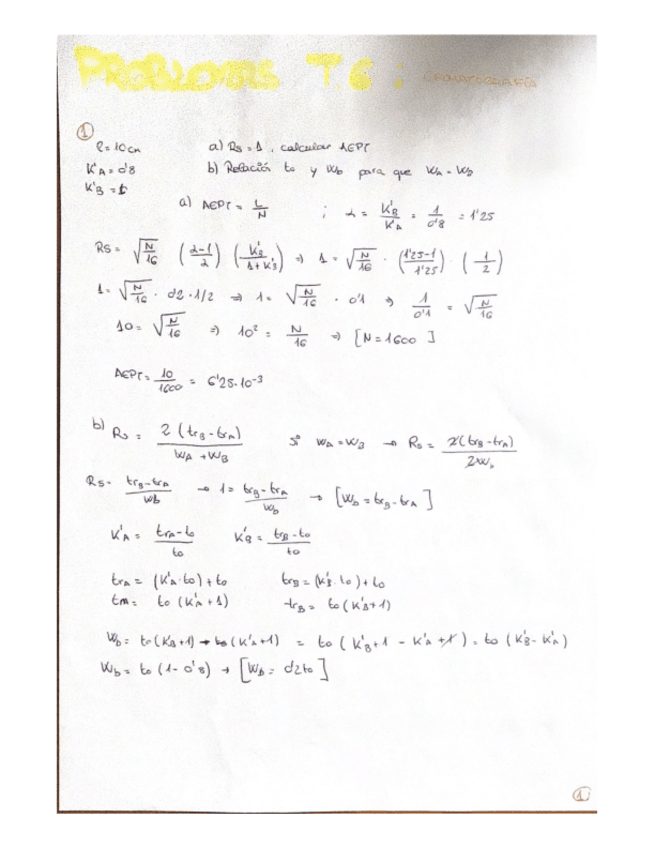 PROBLEMAS T.6: CROMATOGRAFÍA
①
l = 10 cm
a) Rs = 1, calcular AEPT
K'A = 0'8
b) Relación to y Wb para que WA = WB
K'B = 1
a) AEPT = L/N ; α = K'B/K'A = 1/0'8 = 1'25
Rs = √(N/16) (α-1/α) (K'B/1+K'B) ⇒ 1 = √(N/16) · (1'25-1/1'25) · (1/2)
1 = √(N/16) · 0'2 · 1/2 ⇒ 1 = √(N/16) · 0'1 ⇒ 1/0'1 = √(N/16)
10 = √(N/16) ⇒ 10² = N/16 ⇒ [N = 1600]
AEPT = 10/1600 = 6'25·10⁻³
b) Rs = 2(trB - trA)/WA + WB si WA = WB → Rs = 2(trB - trA)/2Wb
Rs = trB - trA/Wb → 1 = trB - trA/Wb → [Wb = trB - trA]
K'A = trA - to/to K'B = trB - to/to
trA = (K'A·to) + to trB = (K'B·to) + to
trA = to(K'A + 1) trB = to(K'B + 1)
Wb = to(K'B + 1) - to(K'A + 1) = to(K'B + 1 - K'A + 1) = to(K'B - K'A)
Wb = to(1 - 0'8) → [Wb = 0'2to]
①